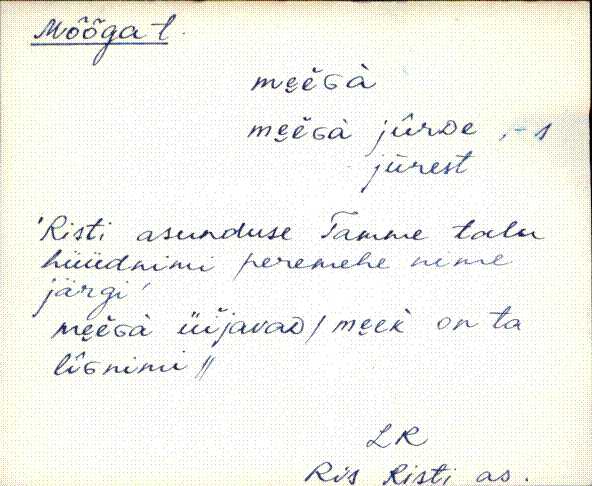 Mõõga t.
mee̮ĕGà
mee̮ĕGà jûrDe, -s
jūrest
'Risti asunduse Tamme talu
hüüdnimi peremehe nime
järgi'
mee̮ĕGà üijavaD / mee̮k on ta
lîGnimi //
LR
Ris Risti as.